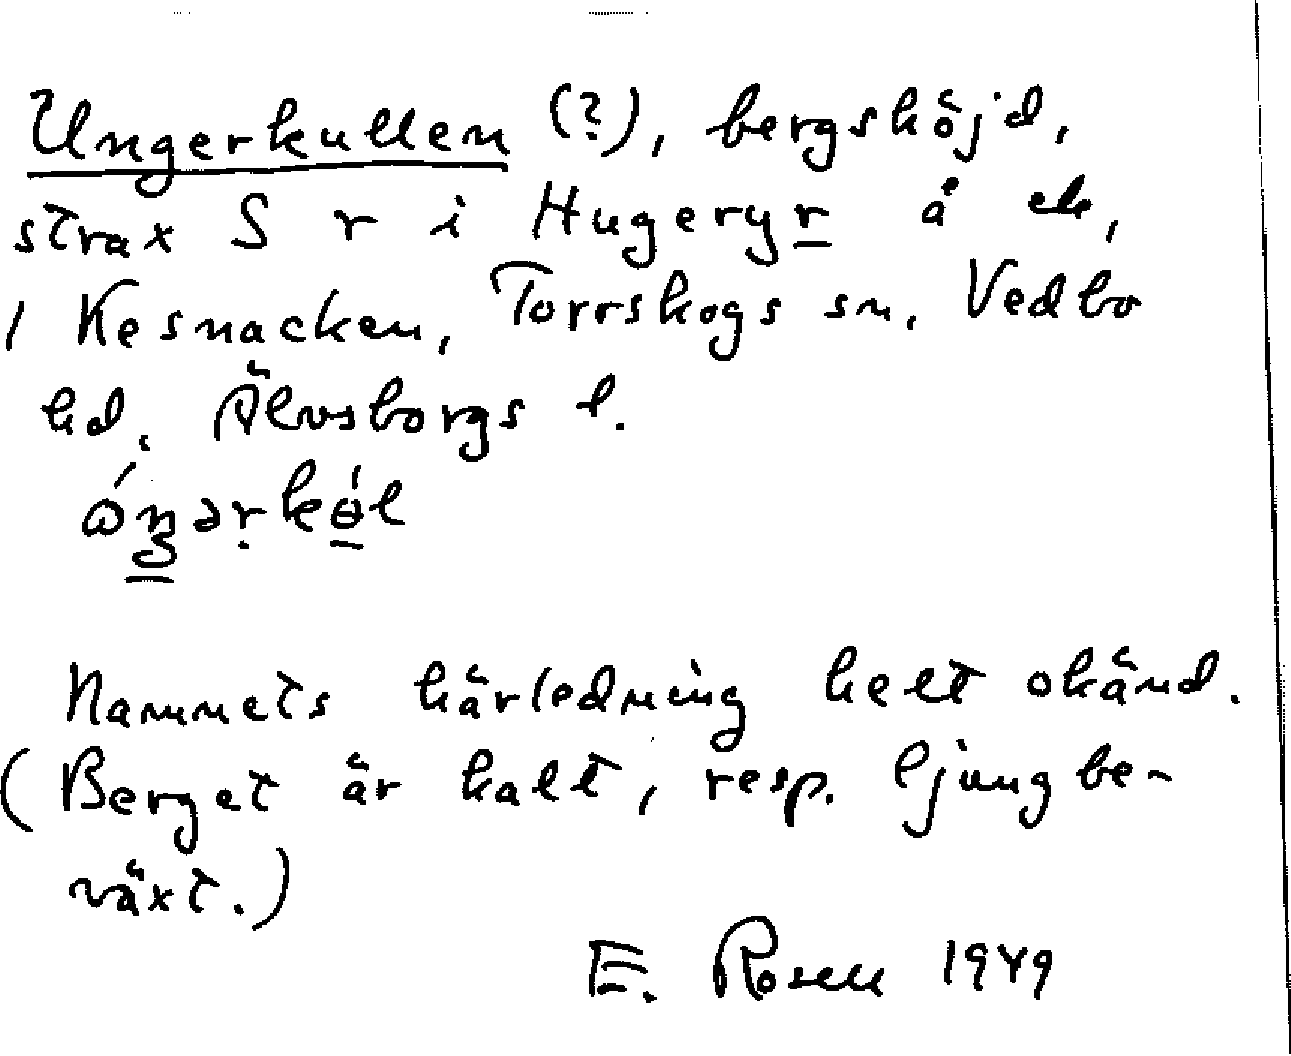 Ungerkullen (?), bergshöjd,
strax S r i Hugeryr å ek,
/ Kesnacken, Torrskogs sn, Vedbo
hd, Älvsborgs l.
Nammets härledning helt okänd.
(Berget är kalt, resp. ljungbe-
växt.)
E. Rosell 1949